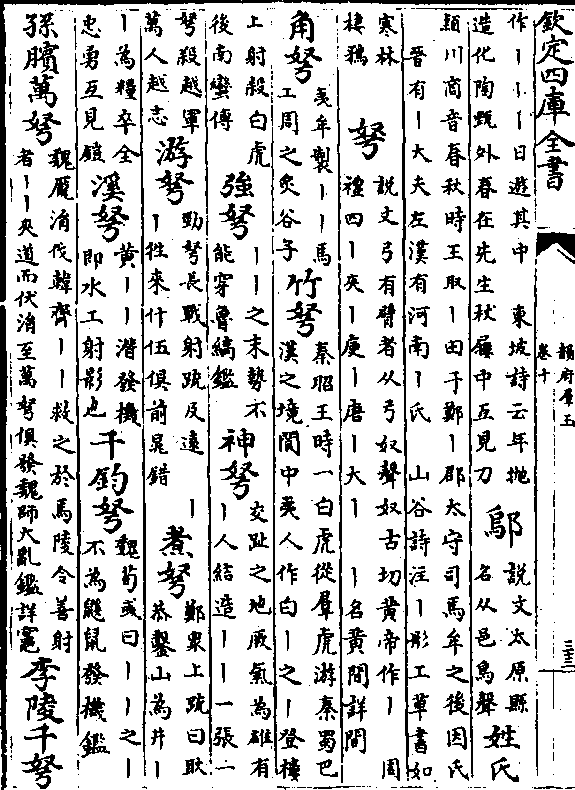 欽定四庫全書
韻府羣玉
卷十
作丨丨丨日遊其中　東坡詩云年拋
造化陶甄外春在先生杖屨中互見刀
鄔
說文太原縣
名从邑烏聲
姓氏
潁川商音春秋時王取丨田于鄭丨郡太守司馬牟之後因氏
晉有丨大夫左漢有河南丨氏　山谷詩注丨彤工草書如
寒林
棲鴉
弩
說文弓有臂者从弓奴聲奴古切黃帝作丨　周
禮四丨夾丨庾丨唐丨大丨　丨名黃間詳間
角弩
夷牟製丨丨馬
工周之炙谷子
竹弩
秦昭王時一白虎從羣虎游秦蜀巴
漢之境閬中夷人作白丨之丨登樓
上射殺白虎
後南蠻傳
強弩
丨丨之末勢不
能穿魯縞鑑
神弩
交趾之地厥氣為雄有
丨人結造丨丨一張一
弩殺越軍
萬人越志
游弩
勁弩長戟射疏及遠丨
丨徃來什伍俱前晁錯
煮弩
鄭衆上疏曰耿
恭鑿山為井丨
丨為糧卒全
忠勇互見鎧
溪弩
黃丨丨潛發機
即水工射影也
千鈞弩
魏荀彧曰丨丨之丨
不為鼷鼠發機鑑
孫臏萬弩
魏龐涓伐韓齊丨丨救之於馬陵令善射
者丨丨夾道而伏涓至萬弩俱發魏師大亂鑑詳竈
李陵千弩